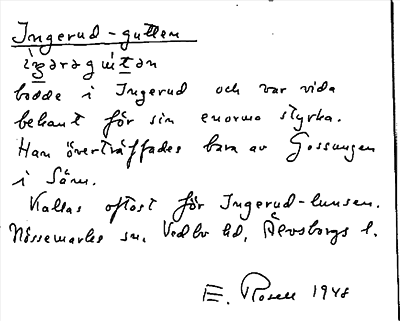 Ingerud-gutten
bodde i Ingerud och var vida
bekant för sin enorma styrka.
Han överträffades bara av Gossungen
i Söm.
Kallas oftast för Ingerud-lunsen.
Nössemarks sn, Vedbo hd, Älvsborgs l.
E. Rosell 1948